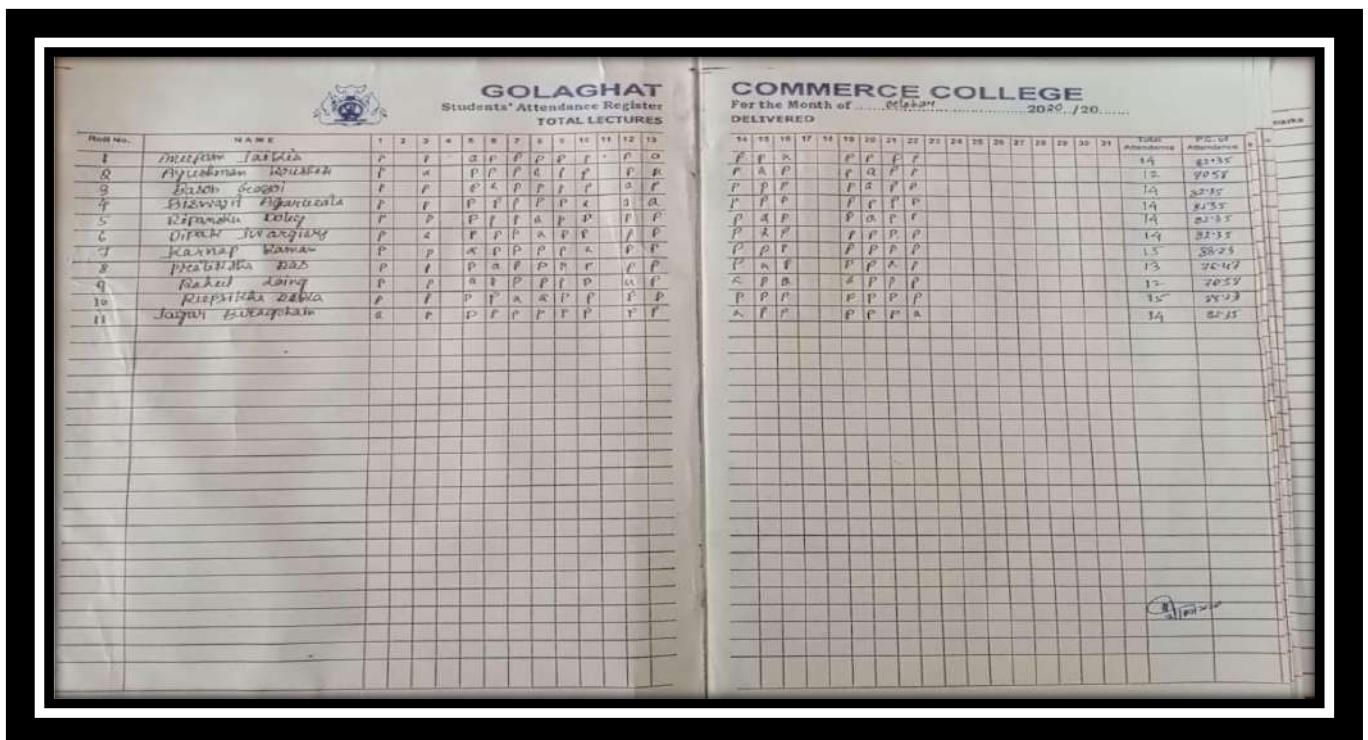 GOLAGHAT COMMERCE COLLEGE
Students' Attendance Register For the Month of October 2020/20
TOTAL LECTURES DELIVERED
Roll No. NAME 1 2 3 4 5 6 7 8 9 10 11 12 13 14 15 16 17 18 19 20 21 22 23 24 25 26 27 28 29 30 31 Total Attendance P.C. of Attendance
1 P P a P P P P P P a P P a P P P P 14 82.35
2 Ayushman P a P P P a P P P a P a P P a P P 12 70.58
3 Gogoi P P P a P P P P a P P P P P a P P 14 82.35
4 Biswajit Agarwala P P P P P P P a a a P P P P P P P 14 82.35
5 Doley P P P P P a P P P P P a P P a P P 14 82.35
6 P a P P P a P P P P P a P P P P P 14 82.35
7 P P a P P P P a P P P P P P P P P 15 88.23
8 Das P P P a P P P P P P P a P P P a P 13 76.47
9 P P a P P P P P a P a P a a P P P 12 70.58
10 P P P P a a P P P P P P P P P P P 15 88.23
11 a P P P P P P P P P a P P P P P a 14 82.35